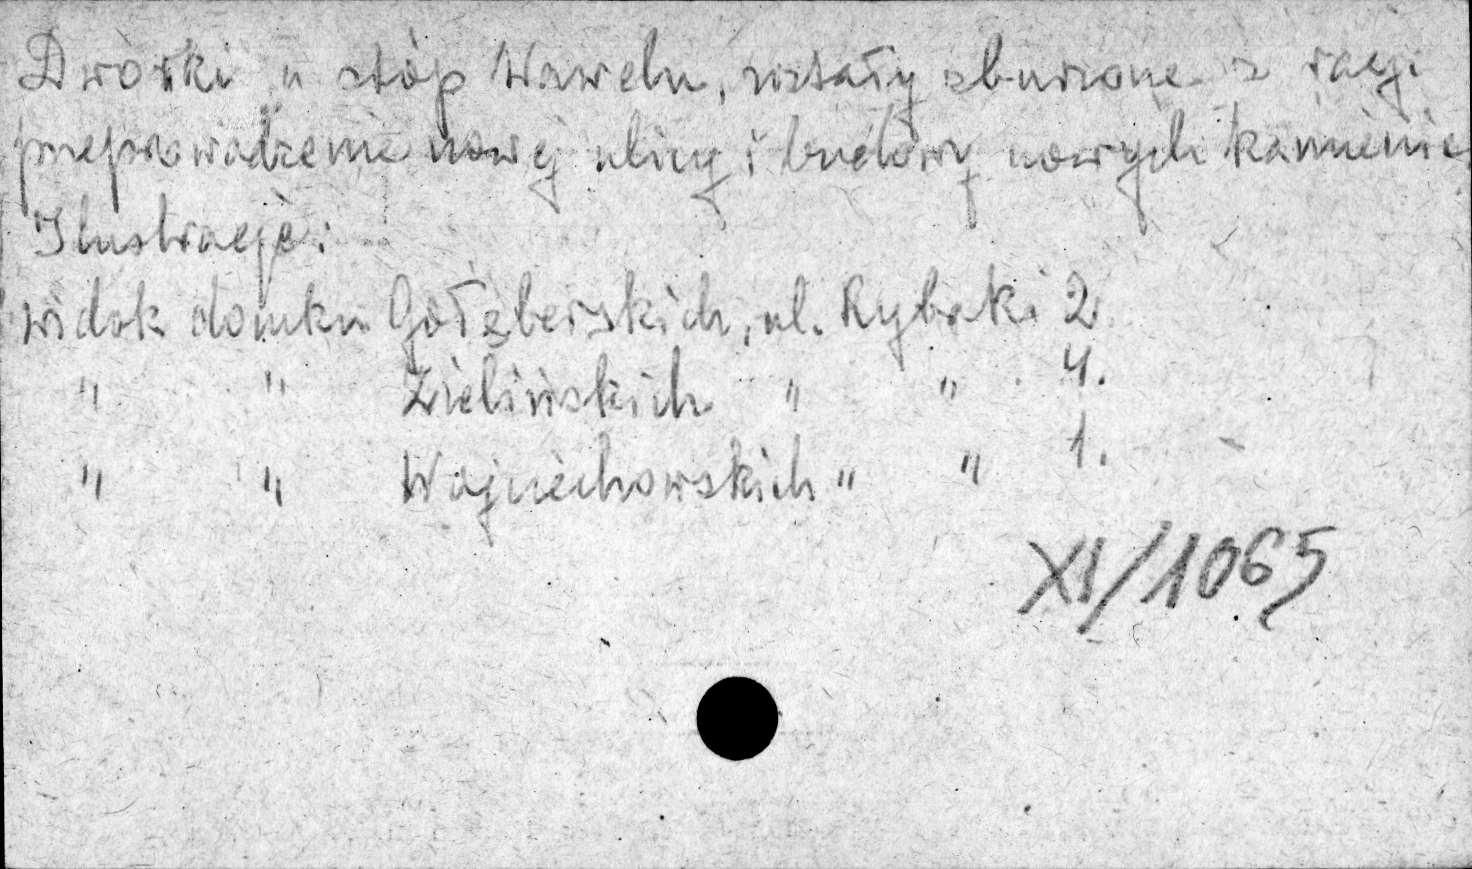 Dworki u stóp Wawelu, zostały zburzone z racji
przeprowadzenie nowej ulicy i budowy nowych kamienic
Ilustracje:
widok domku Gołęberskich, ul. Rybaki 2.
" " Zielińskich " " 4.
" " Wojciechowskich " " 1.
XI/1065